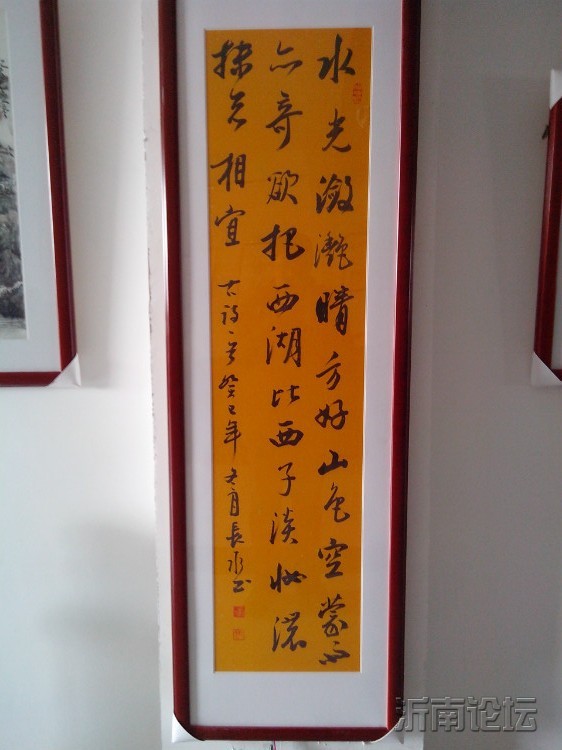 水光潋滟晴方好山色空蒙雨
亦奇欲把西湖比西子淡妆浓
抹总相宜 古诗一首 癸巳年 月長水书
沂南论坛